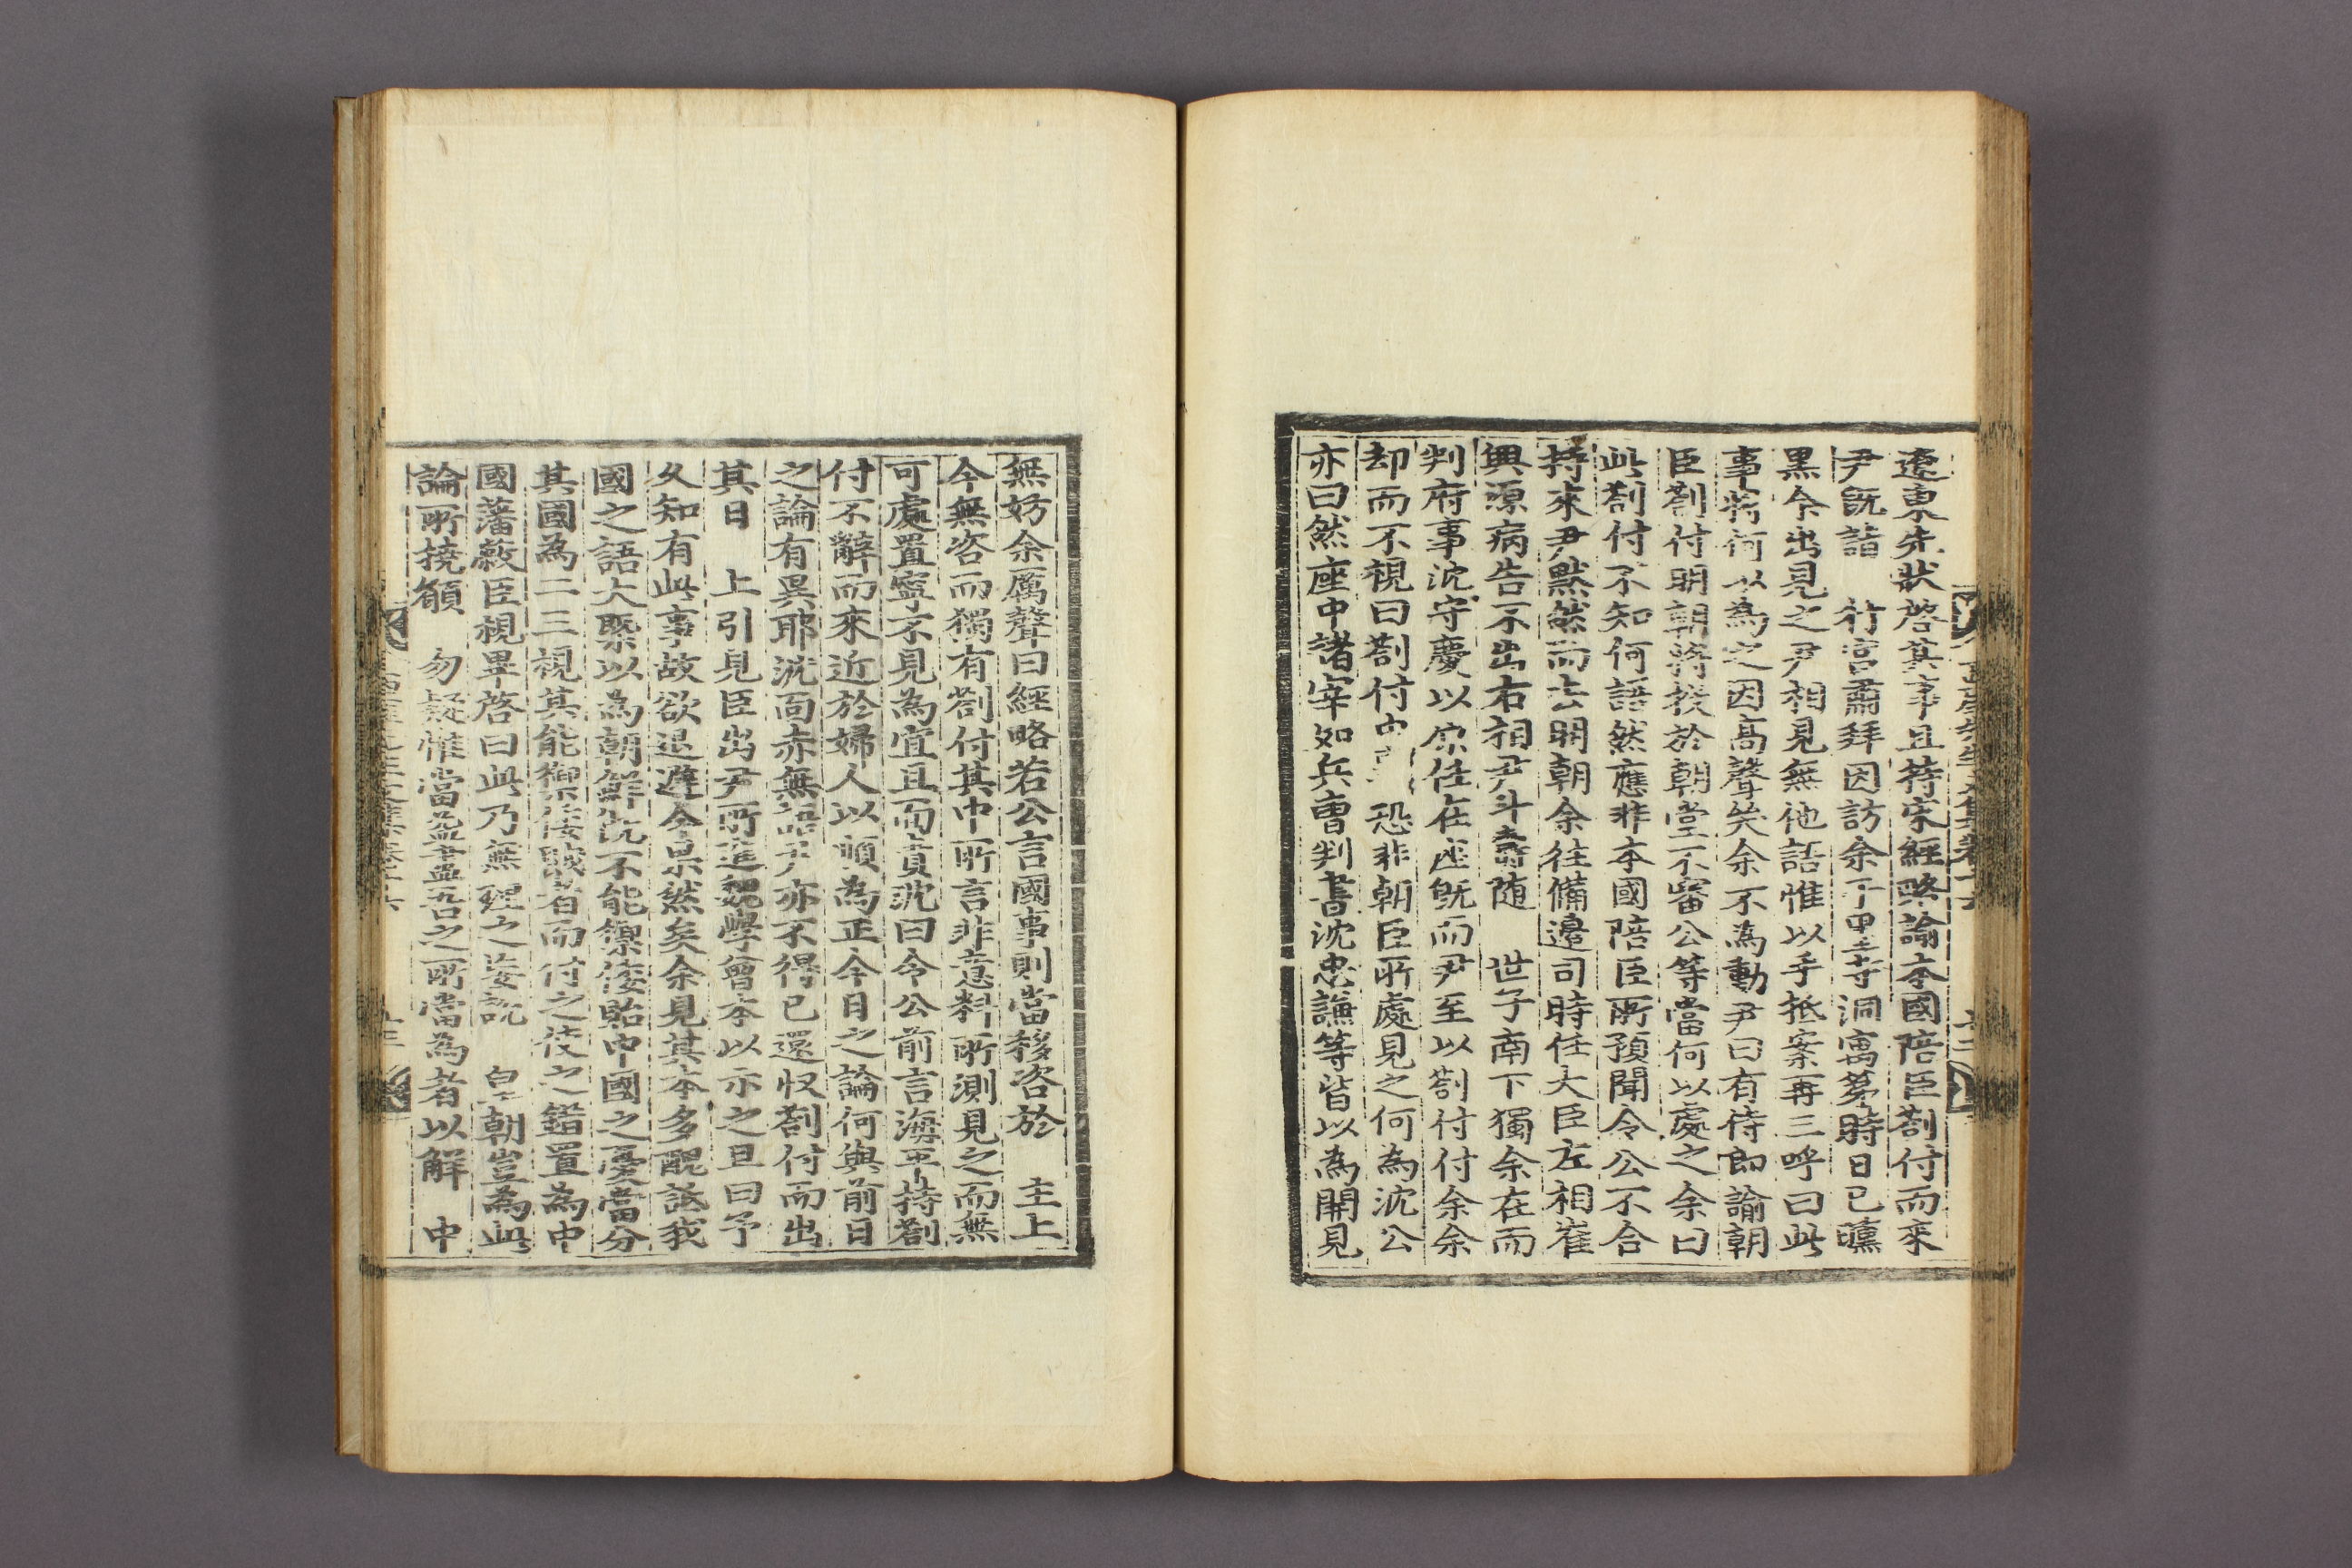 遼東先狀啓其事且持宋經略諭本國陪臣劄付而來
尹旣詣 行宮肅拜因訪余于甲士寺洞寓第時日已曛
黑余出見之尹相見無他話惟以手抵案再三呼曰此
事將何以爲之因高聲笑余不爲動尹曰有侍郞諭朝
臣劄付明朝將投於朝堂不審公等當何以處之余曰
此劄付不知何語然應非本國陪臣所預聞令公不合
持來尹默然而去明朝余往備邊司時任大臣左相崔
興源病告不出右相尹斗壽隨 世子南下獨余在而
判府事沈守慶以原任在座旣而尹至以劄付付余余
却而不視曰劄付中 恐非朝臣所處見之何爲沈公
亦曰然座中諸宰如兵曹判書沈忠謙等皆以爲開見
無妨余厲聲曰經略若公言國事則當移咨於 主上
今無咨而獨有劄付其中所言非意料所測見之而無
可處置寧不見爲宜且面責沈曰令公前言海平持劄
付不辭而來近於婦人以順爲正今日之論何與前日
之論有異耶沈面赤無語尹亦不得已還收劄付而出
其日 上引見臣出尹所進魏學曾本以示之且曰予
久知有此事故欲退避今果然矣余見其本多醜詆我
國之語大槩以爲朝鮮旣不能禦倭貽中國之憂當分
其國爲二三視其能禦倭賊者而付之使之錯置爲中
國藩蔽臣視畢啓曰此乃無理之妄說 皇朝豈爲此
論所撓願 勿疑惟當益盡吾之所當爲者以解 中